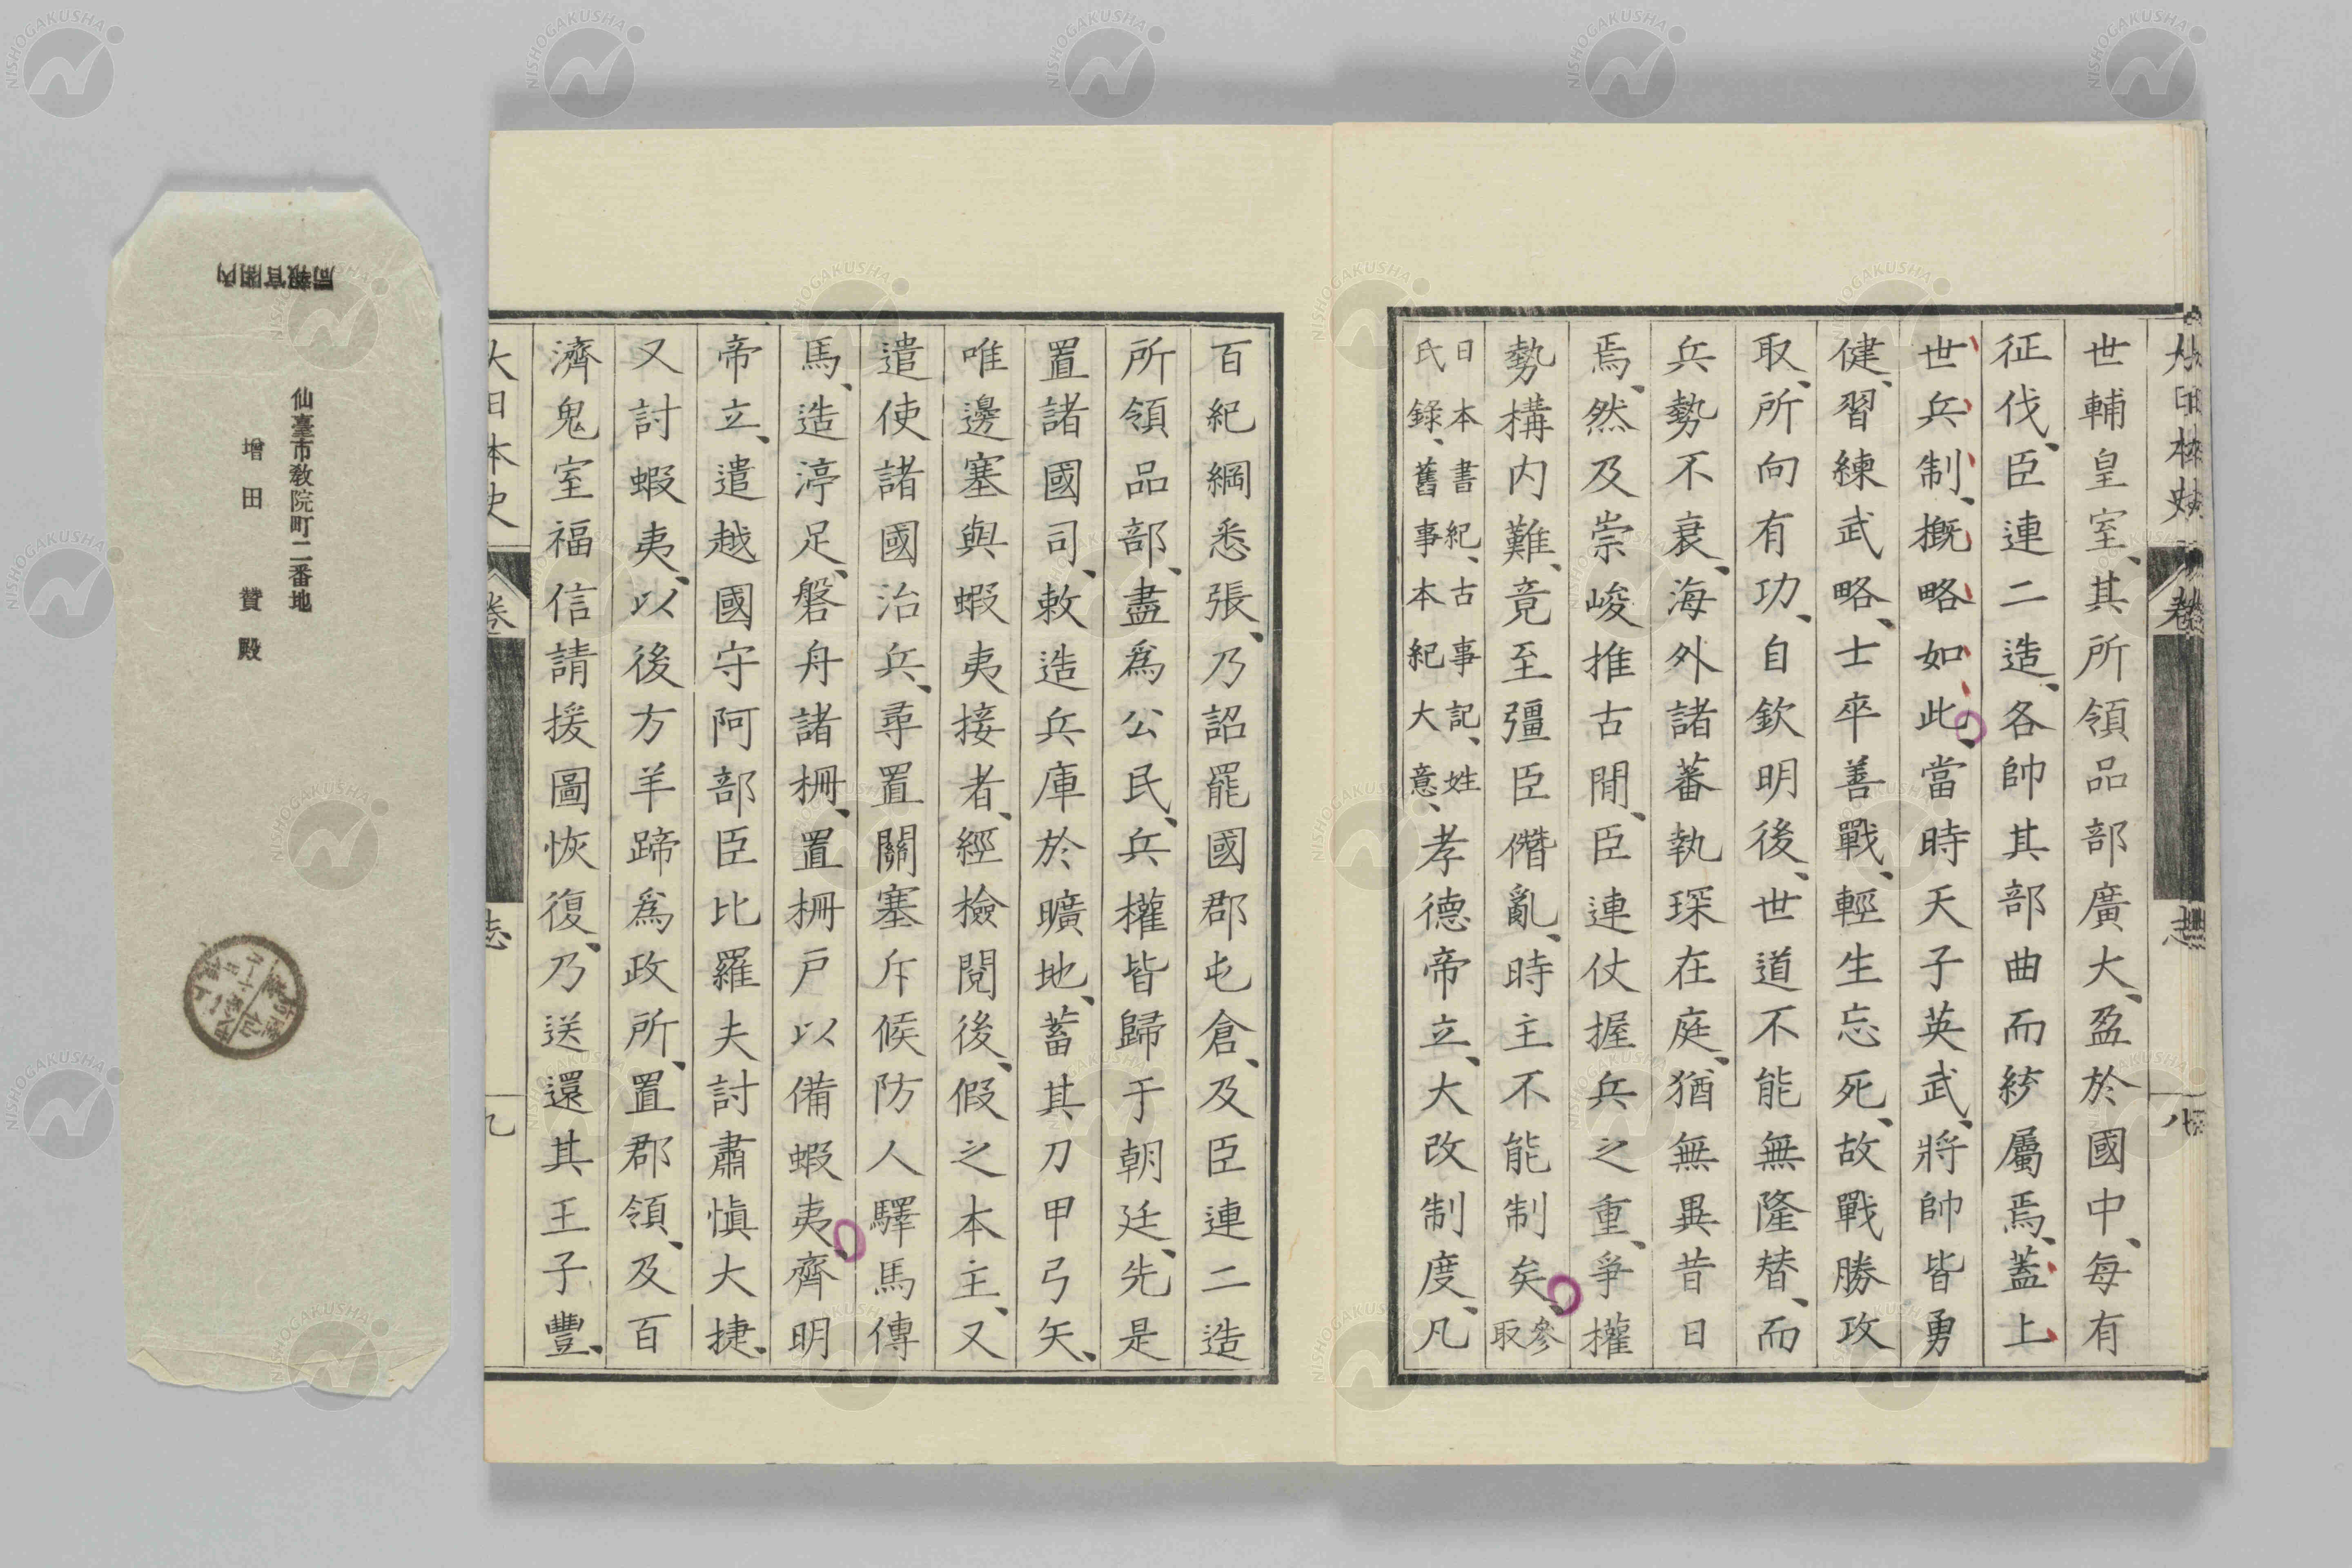 世輔皇室、其所領品部廣大、盈於國中、每有
征伐、臣連二造、各帥其部曲而統屬焉、蓋上
世兵制、概略如此、當時天子英武、將帥皆勇
健、習練武略、士卒善戰、輕生忘死、故戰勝攻
取、所向有功、自欽明後、世道不能無隆替、而
兵勢不衰、海外諸蕃執琛在庭、猶無異昔日
焉、然及崇峻推古間、臣連仗握兵之重、爭權
勢構内難、竟至彊臣僭亂、時主不能制矣、參取
日本書紀、古事記、姓
氏錄、舊事本紀大意、
孝德帝立、大改制度、凡
百紀綱悉張、乃詔罷國郡屯倉、及臣連二造
所領品部、盡爲公民、兵權皆歸于朝廷、先是
置諸國司、敕造兵庫於曠地、蓄其刀甲弓矢、
唯邊塞與蝦夷接者、經檢閱後、假之本主、又
遣使諸國治兵、尋置關塞斥候防人驛馬傳
馬、造渟足、磐舟諸柵、置柵戸以備蝦夷、齊明
帝立、遣越國守阿部臣比羅夫討肅愼大捷、
又討蝦夷、以後方羊蹄爲政所、置郡領、及百
濟鬼室福信請援圖恢復、乃送還其王子豐、
大日本史
卷
志
九
内閣官報局
仙臺市教院町二番地
增田 贊殿
NISHOGAKUSHA